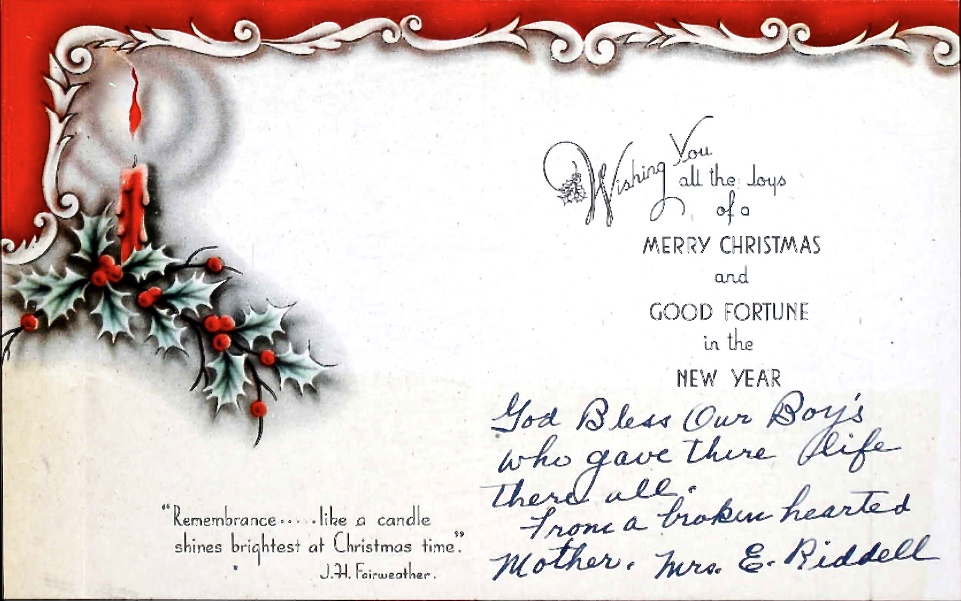 Wishing You
all the Joys
of a
MERRY CHRISTMAS
and
GOOD FORTUNE
in the
NEW YEAR
God Bless Our Boy's
who gave there life
there all.
From a broken hearted
Mother. Mrs. E. Riddell
"Remembrance.....like a candle
shines brightest at Christmas time".
J.H. Fairweather.